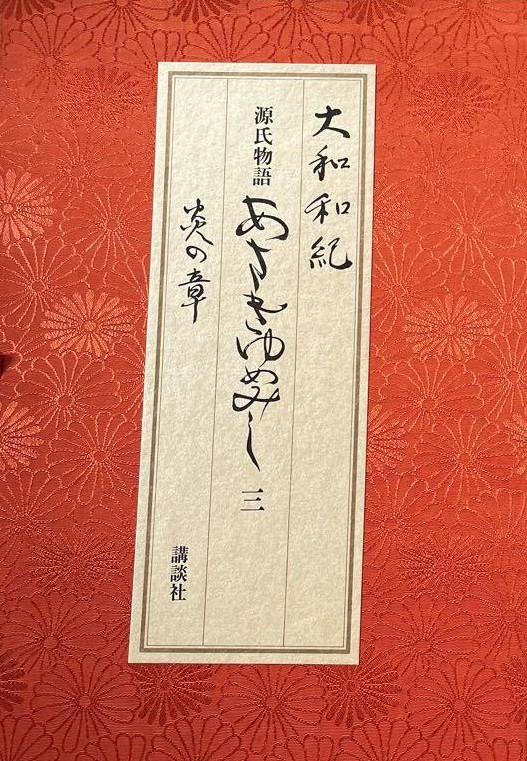 大和和紀
源氏物語 あさきゆめみし 三
炎の章
講談社